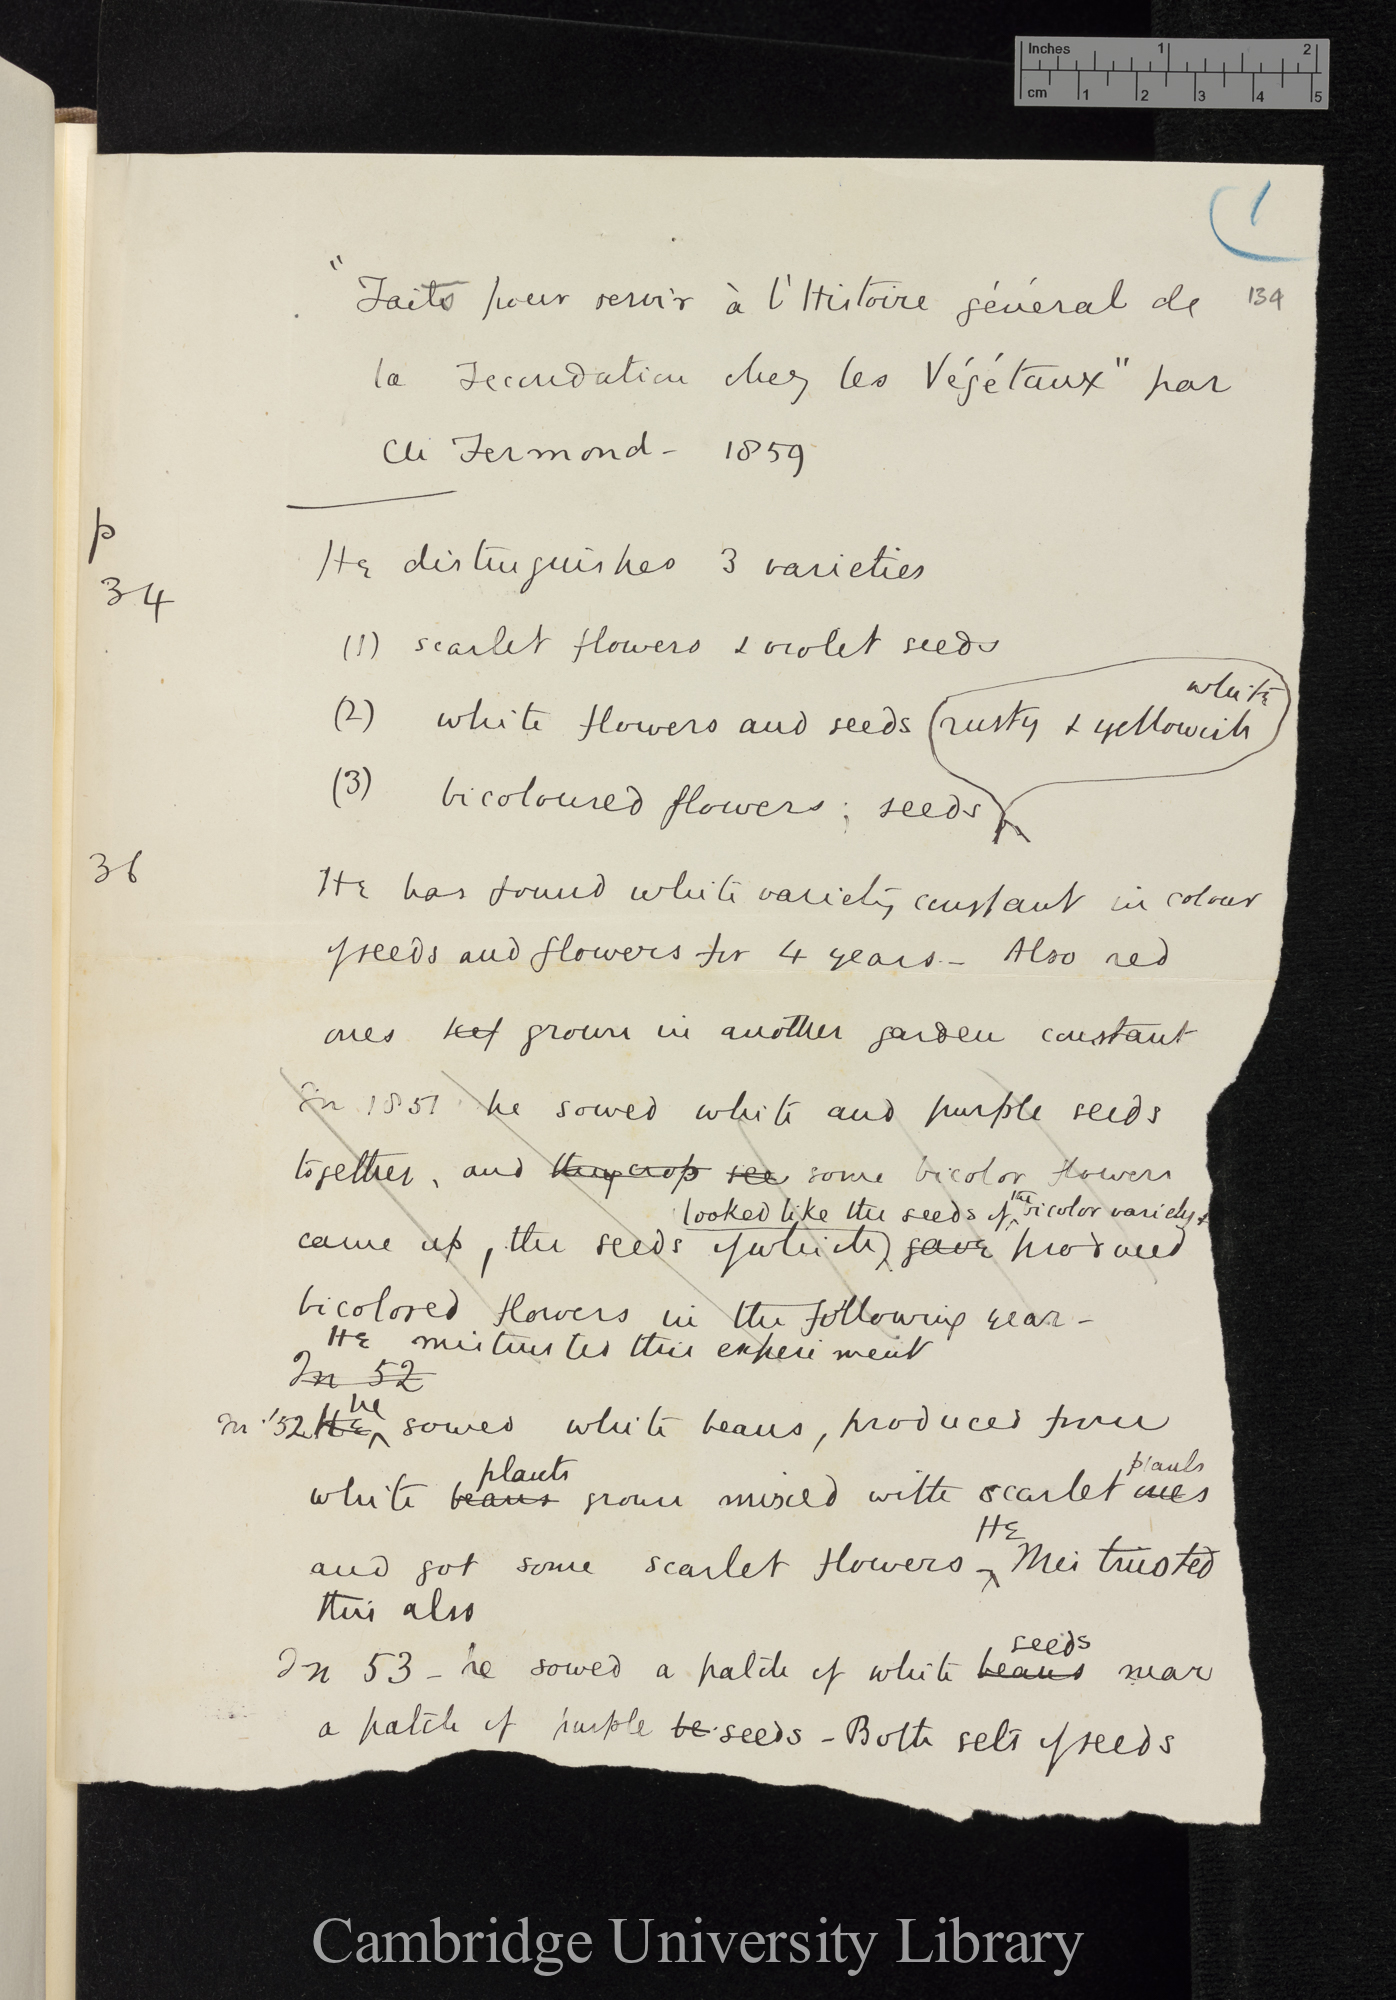 Inches 1 2
cm 1 2 3 4 5
1
"Faits pour servir à l'Histoire général de 134
la Fecondation chez les Végétaux" par
Ch Fermond - 1859
p
34
He distinguishes 3 varieties
(1) scarlet flowers & violet seeds
(2) white flowers and seeds
white
(rusty & yellowish
(3) bicoloured flowers; seeds
36
He has found white variety constant in colour
of seeds and flowers for 4 years - Also red
ones grown in another garden constant
In 1851 he sowed white and purple seeds
together, and they crop see some bicolor flowers
looked like the seeds of the bicolor variety &
came up, the seeds of which gave produced
bicolored flowers in the following year -
He mistrusted this experiment
In 52
he
In '52 He sowed white beans, produced from
plants plants
white beans grown mixed with scarlet ones
He
and got some scarlet flowers - Mistrusted
this also
seeds
In 53 - he sowed a patch of white beans near
a patch of purple be seeds - Both sets of seeds
Cambridge University Library